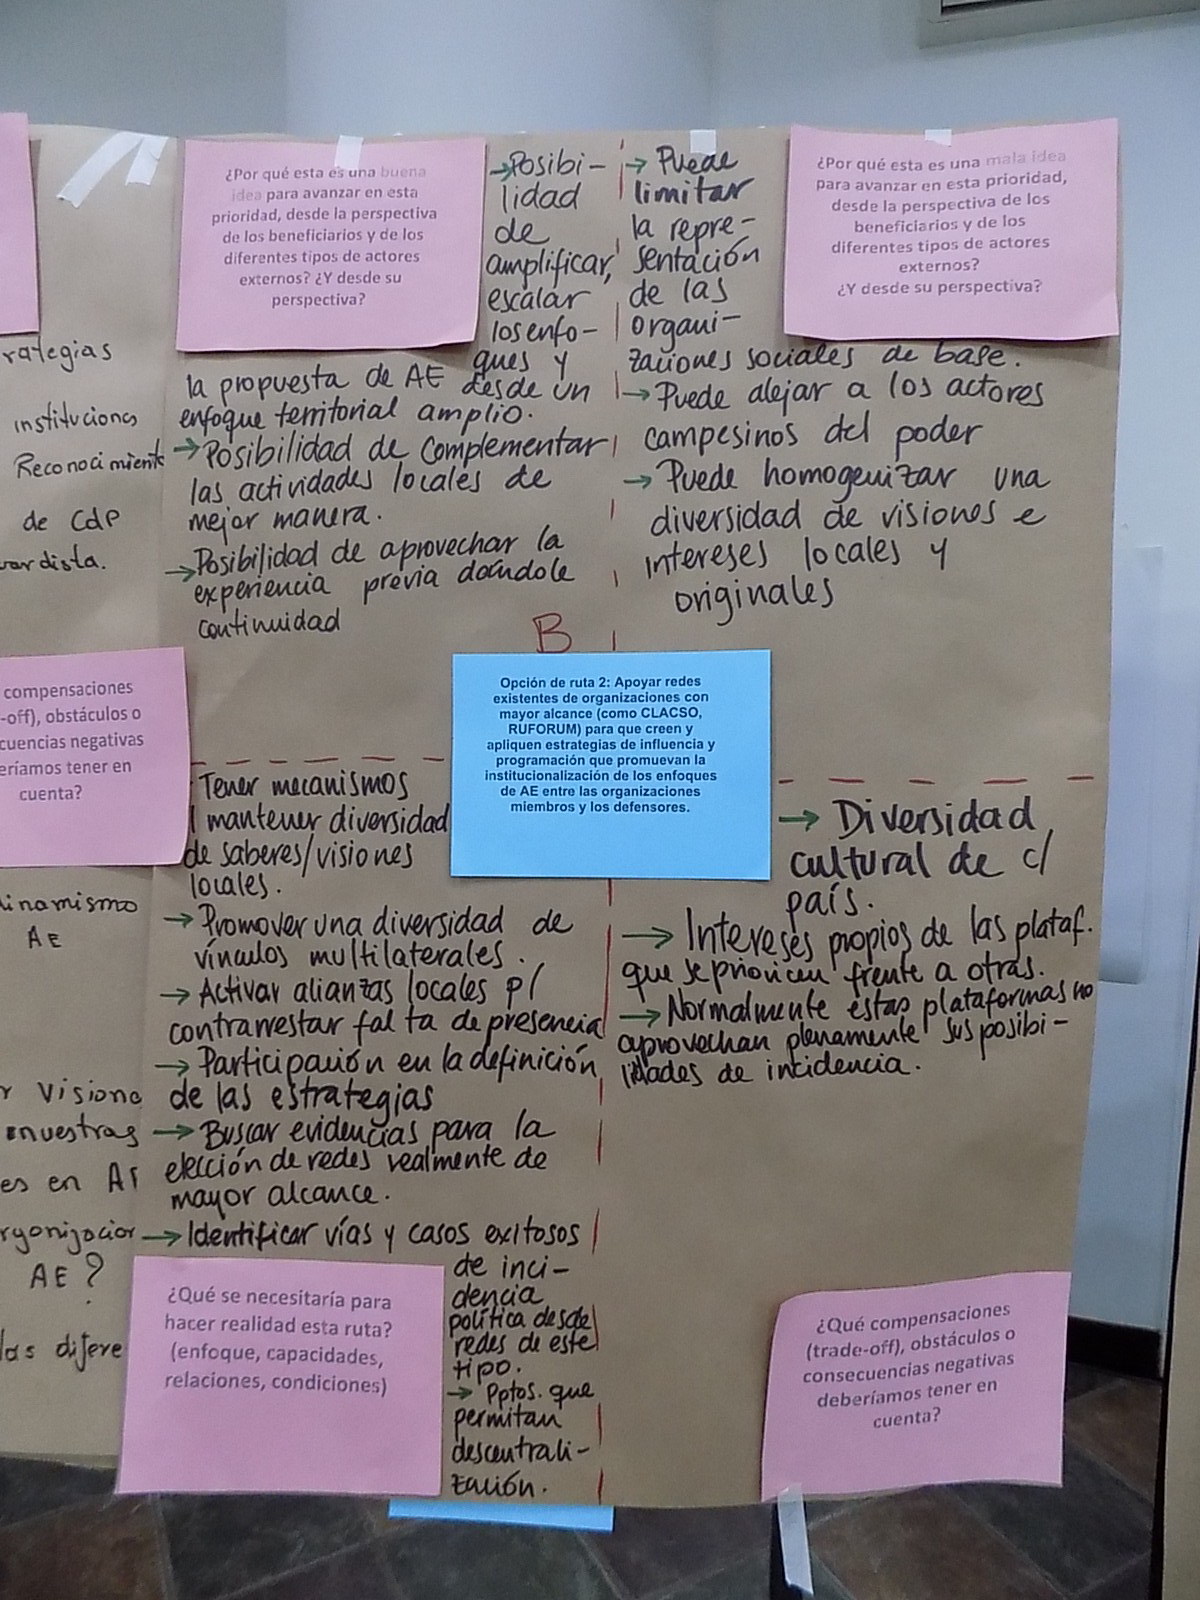 ¿Por qué esta es una buena
idea para avanzar en esta
prioridad, desde la perspectiva
de los beneficiarios y de los
diferentes tipos de actores
externos? ¿Y desde su
perspectiva?
→Posibi-
lidad
de
amplificar,
escalar
los enfo-
ques y
la propuesta de AE desde un
enfoque territorial amplio.
→Posibilidad de complementar
las actividades locales de
mejor manera.
→Posibilidad de aprovechar la
experiencia previa dándole
continuidad
→ Puede
limitar
la repre-
sentación
de las
organi-
zaciones sociales de base.
→Puede alejar a los actores
campesinos del poder
→ Puede homogenizar una
diversidad de visiones e
intereses locales y
originales
¿Por qué esta es una mala idea
para avanzar en esta prioridad,
desde la perspectiva de los
beneficiarios y de los
diferentes tipos de actores
externos?
¿Y desde su perspectiva?
B
Opción de ruta 2: Apoyar redes
existentes de organizaciones con
mayor alcance (como CLACSO,
RUFORUM) para que creen y
apliquen estrategias de influencia y
programación que promuevan la
institucionalización de los enfoques
de AE entre las organizaciones
miembros y los defensores.
Tener mecanismos
mantener diversidad
de saberes/visiones
locales.
→ Promover una diversidad de
vínculos multilaterales.
→ Activar alianzas locales p/
contrarrestar falta de presencia
→ Participación en la definición
de las estrategias
→ Buscar evidencias para la
elección de redes realmente de
mayor alcance.
→ Identificar vías y casos exitosos
de inci-
dencia
política desde
redes de este
tipo.
→ Pptos. que
permitan
descentrali-
zación.
¿Qué se necesitaría para
hacer realidad esta ruta?
(enfoque, capacidades,
relaciones, condiciones)
→ Diversidad
cultural de c/
país.
→ Intereses propios de las plataf.
que se prioricen frente a otras.
→ Normalmente estas plataformas no
aprovechan plenamente sus posibi-
lidades de incidencia.
¿Qué compensaciones
(trade-off), obstáculos o
consecuencias negativas
deberíamos tener en
cuenta?
rategias
instituciones
Reconocimiento
de CdP
vardista.
compensaciones
-off), obstáculos o
cuencias negativas
eríamos tener en
cuenta?
dinamismo
AE
r visione
nuestras
es en AE
rganizacion
AE?
las difere